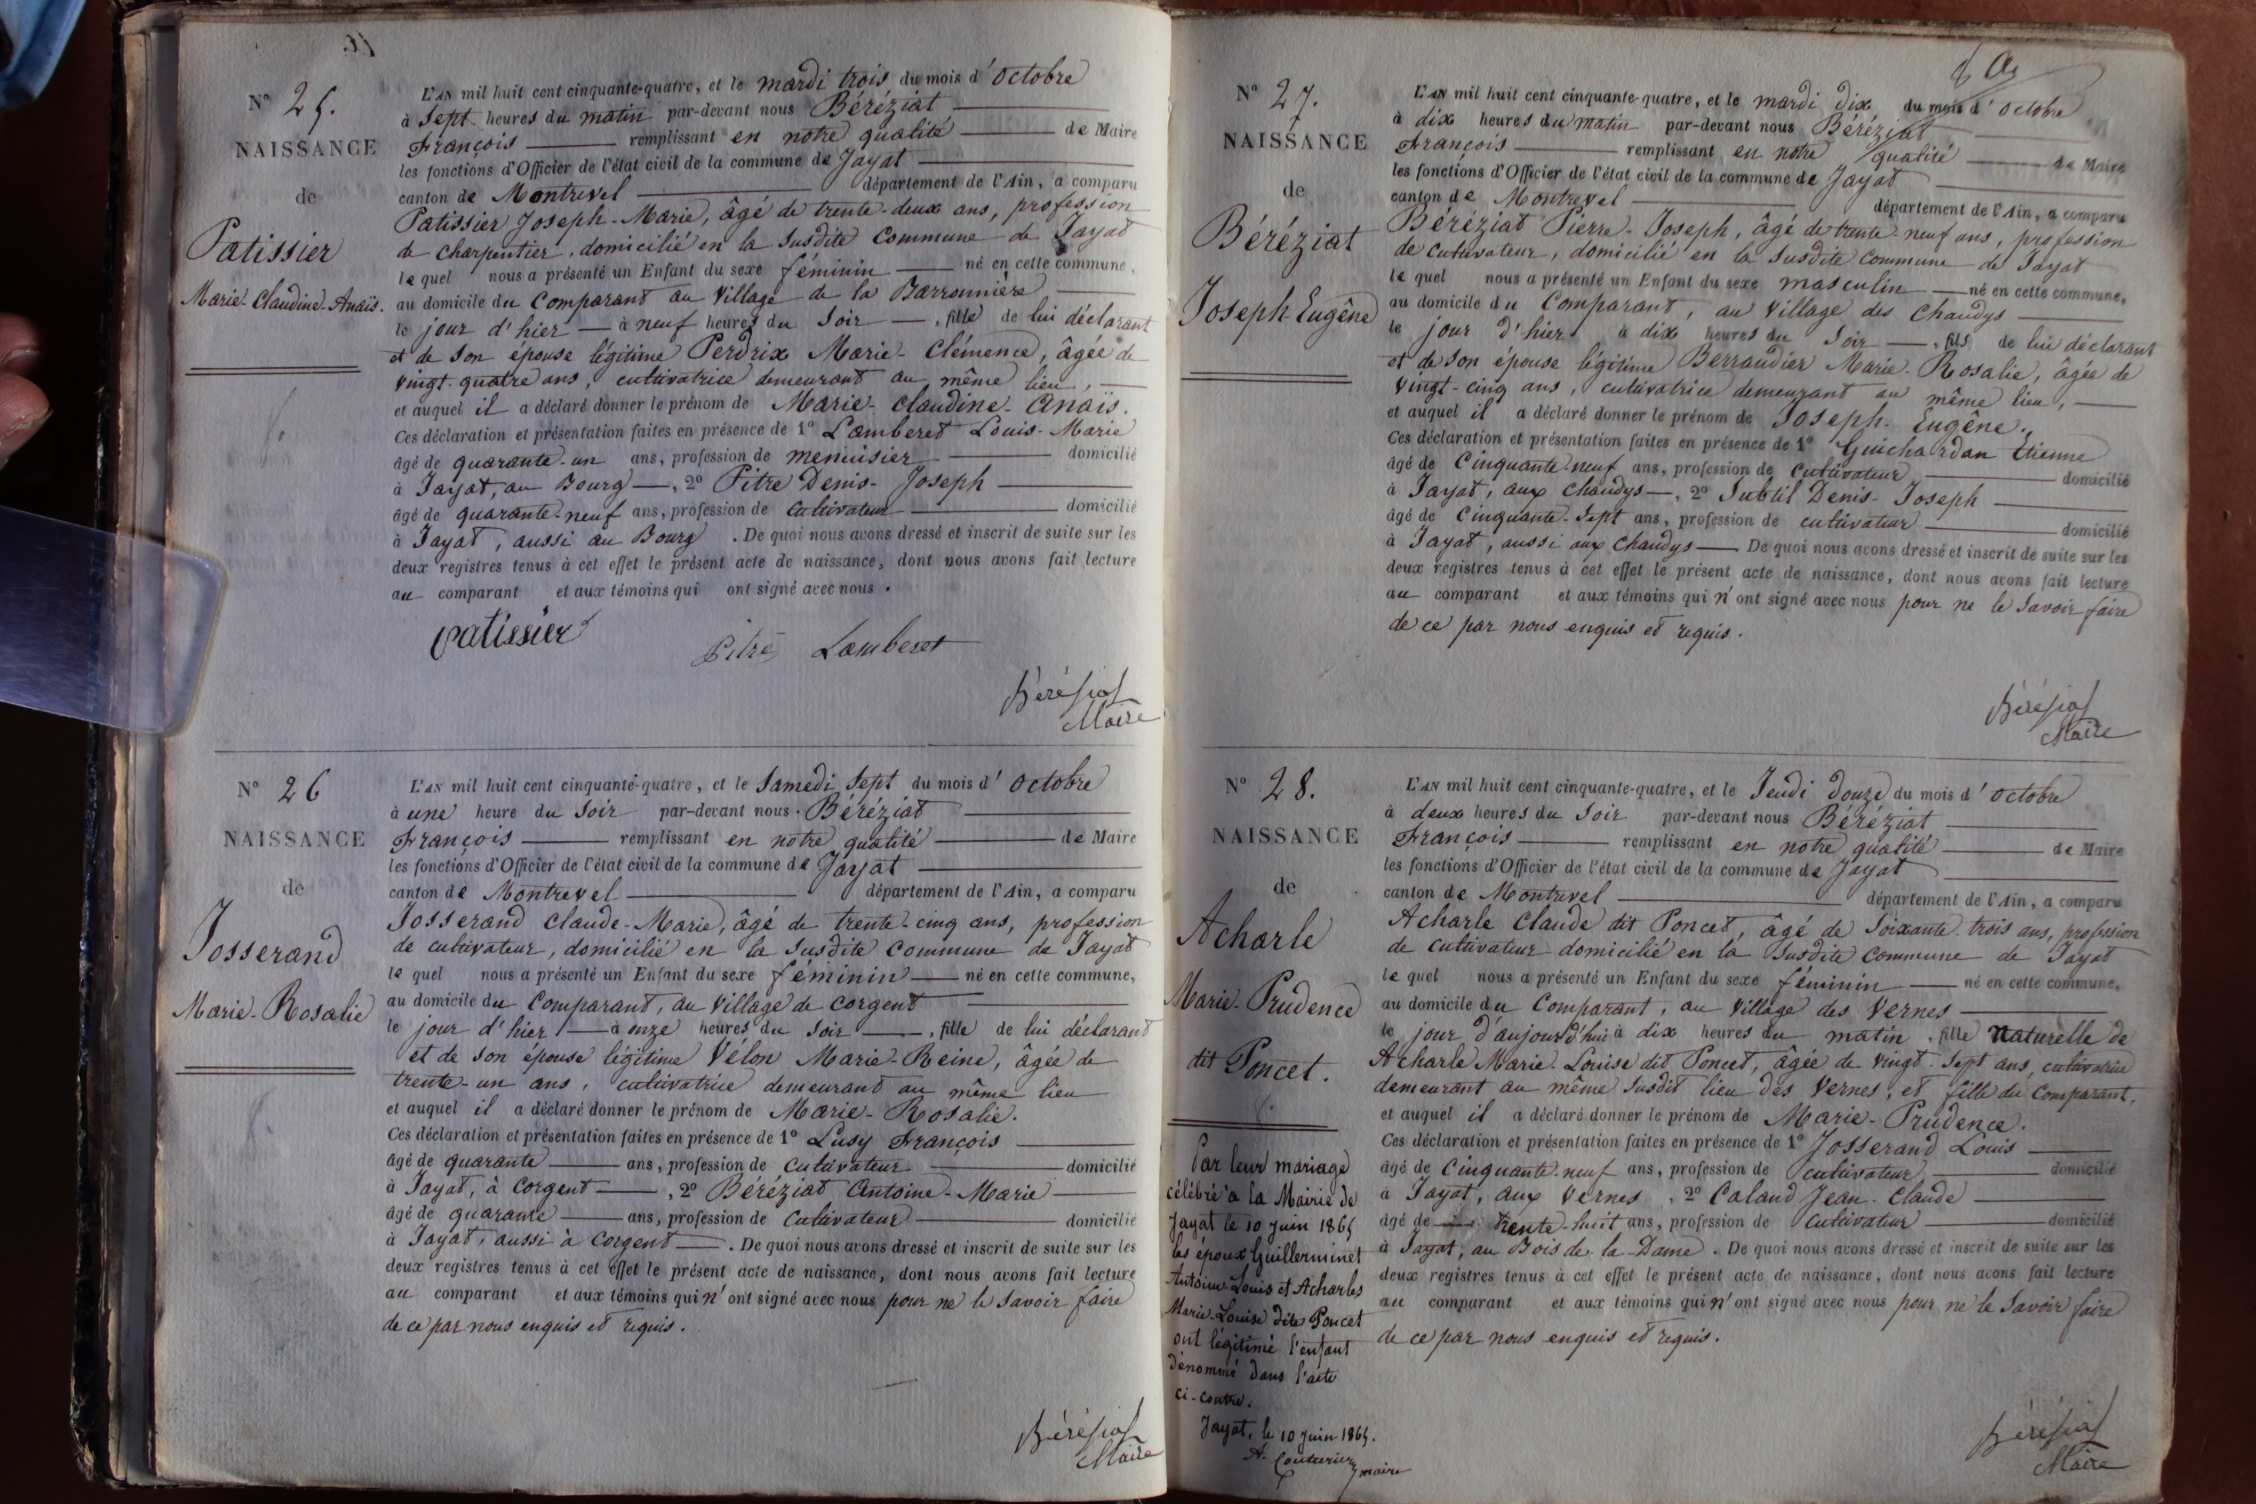 N° 25.
NAISSANCE
de
Patissier
Marie-Claudine-Anaïs.
L'AN mil huit cent cinquante-quatre, et le mardi trois du mois d'octobre
à Sept heures du matin par-devant nous Béréziat
François remplissant en notre qualité de Maire
les fonctions d'Officier de l'état civil de la commune de Jayat
canton de Montrevel département de l'Ain, a comparu
Patissier Joseph-Marie, âgé de trente-deux ans, profession
de charpentier, domicilié en la susdite commune de Jayat
lequel nous a présenté un Enfant du sexe féminin né en cette commune,
au domicile du Comparant au Village de la Barronnière
le jour d'hier à neuf heures du Soir, fille de lui déclarant
et de son épouse légitime Perdrix Marie-Clémence, âgée de
vingt-quatre ans, cultivatrice demeurant au même lieu,
et auquel il a déclaré donner le prénom de Marie-Claudine-Anaïs.
Ces déclaration et présentation faites en présence de 1° Lamberet Louis-Marie
âgé de quarante-un ans, profession de menuisier domicilié
à Jayat, au Bourg, 2° Pitre Denis-Joseph
âgé de quarante-neuf ans, profession de Cultivateur domicilié
à Jayat, aussi au Bourg. De quoi nous avons dressé et inscrit de suite sur les
deux registres tenus à cet effet le présent acte de naissance, dont nous avons fait lecture
au comparant et aux témoins qui ont signé avec nous.
Patissier
Pitre Lamberet
Béréziat
Maire
N° 26
NAISSANCE
de
Josserand
Marie-Rosalie
L'AN mil huit cent cinquante-quatre, et le Samedi Sept du mois d'octobre
à une heure du Soir par-devant nous Béréziat
François remplissant en notre qualité de Maire
les fonctions d'Officier de l'état civil de la commune de Jayat
canton de Montrevel département de l'Ain, a comparu
Josserand Claude-Marie, âgé de trente-cinq ans, profession
de cultivateur, domicilié en la susdite commune de Jayat
lequel nous a présenté un Enfant du sexe féminin né en cette commune,
au domicile du Comparant, au Village de Corgent
le jour d'hier à onze heures du Soir, fille de lui déclarant
et de son épouse légitime Vélon Marie-Reine, âgée de
trente-un ans, cultivatrice demeurant au même lieu
et auquel il a déclaré donner le prénom de Marie-Rosalie.
Ces déclaration et présentation faites en présence de 1° Lusy François
âgé de quarante ans, profession de Cultivateur domicilié
à Jayat, à Corgent, 2° Béréziat Antoine-Marie
âgé de quarante ans, profession de Cultivateur domicilié
à Jayat, aussi à Corgent. De quoi nous avons dressé et inscrit de suite sur les
deux registres tenus à cet effet le présent acte de naissance, dont nous avons fait lecture
au comparant et aux témoins qui n'ont signé avec nous pour ne le Savoir faire
de ce par nous enquis et requis.
Béréziat
Maire
N° 27.
NAISSANCE
de
Béréziat
Joseph Eugène
L'AN mil huit cent cinquante-quatre, et le mardi dix du mois d'octobre
à dix heures du matin par-devant nous Béréziat
François remplissant en notre qualité de Maire
les fonctions d'Officier de l'état civil de la commune de Jayat
canton de Montrevel département de l'Ain, a comparu
Béréziat Pierre-Joseph, âgé de trente-neuf ans, profession
de cultivateur, domicilié en la susdite commune de Jayat
lequel nous a présenté un Enfant du sexe masculin né en cette commune,
au domicile du Comparant, au Village des Chaudys
le jour d'hier à dix heures du Soir, fils de lui déclarant
et de son épouse légitime Berraudier Marie-Rosalie, âgée de
Vingt-cinq ans, cultivatrice demeurant au même lieu,
et auquel il a déclaré donner le prénom de Joseph-Eugène.
Ces déclaration et présentation faites en présence de 1° Guichardan Etienne
âgé de Cinquante-neuf ans, profession de Cultivateur domicilié
à Jayat, aux Chaudys, 2° Subtil Denis-Joseph
âgé de Cinquante-Sept ans, profession de cultivateur domicilié
à Jayat, aussi aux Chaudys De quoi nous avons dressé et inscrit de suite sur les
deux registres tenus à cet effet le présent acte de naissance, dont nous avons fait lecture
au comparant et aux témoins qui n'ont signé avec nous pour ne le Savoir faire
de ce par nous enquis et requis.
Béréziat
Maire
N° 28.
NAISSANCE
de
Acharle
Marie-Prudence
dit Poncet.
Par leur mariage
célébré à la Mairie de
Jayat le 10 Juin 1865
les époux Guillerminet
Antoine-Louis et Acharles
Marie-Louise dite Poncet
ont légitimé l'enfant
dénommé dans l'acte
ci-contre.
Jayat, le 10 juin 1865.
A. Couturier, maire
L'AN mil huit cent cinquante-quatre, et le Jeudi douze du mois d'octobre
à deux heures du Soir par-devant nous Béréziat
François remplissant en notre qualité de Maire
les fonctions d'Officier de l'état civil de la commune de Jayat
canton de Montrevel département de l'Ain, a comparu
Acharle Claude dit Poncet, âgé de Soixante-trois ans, profession
de cultivateur domicilié en la susdite commune de Jayat
lequel nous a présenté un Enfant du sexe féminin né en cette commune,
au domicile du Comparant, au Village des Vernes
le jour d'aujourd'hui à dix heures du matin, fille naturelle de
Acharle Marie-Louise dit Poncet, âgée de vingt-Sept ans, cultivatrice
demeurant au même susdit lieu des Vernes, et fille du Comparant,
et auquel il a déclaré donner le prénom de Marie-Prudence.
Ces déclaration et présentation faites en présence de 1° Josserand Louis
âgé de Cinquante-neuf ans, profession de cultivateur domicilié
à Jayat, aux Vernes, 2° Caland Jean-Claude
âgé de trente-huit ans, profession de Cultivateur domicilié
à Jayat, au Bois de la Dame. De quoi nous avons dressé et inscrit de suite sur les
deux registres tenus à cet effet le présent acte de naissance, dont nous avons fait lecture
au comparant et aux témoins qui n'ont signé avec nous pour ne le Savoir faire
de ce par nous enquis et requis.
Béréziat
Maire